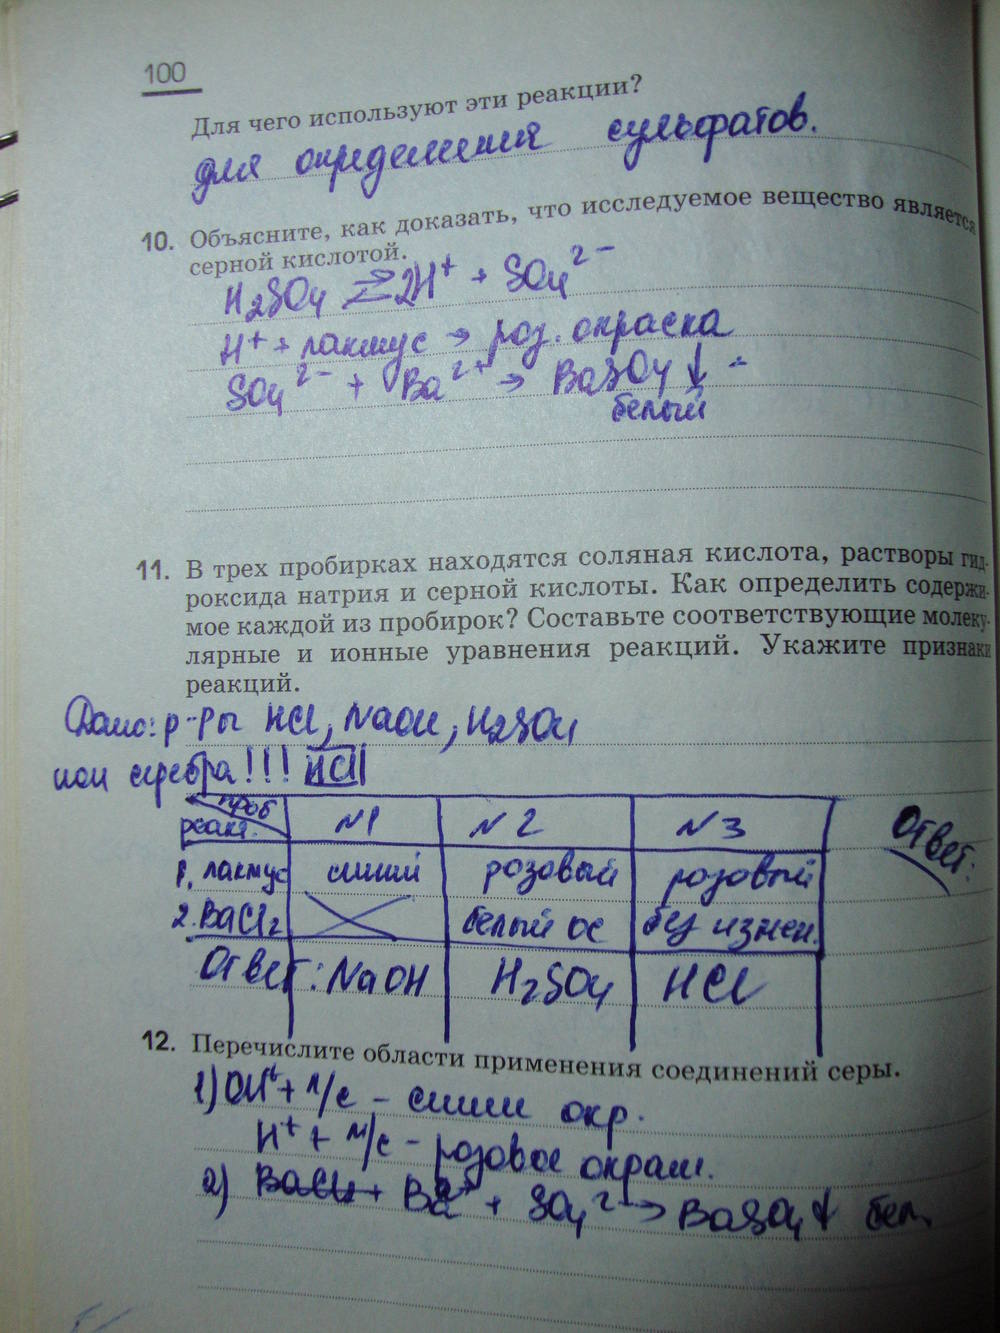 100
Для чего используют эти реакции?
для определения сульфатов.
10. Объясните, как доказать, что исследуемое вещество является
серной кислотой.
H₂SO₄ ⇄ 2H⁺ + SO₄²⁻
H⁺ + лакмус → роз. окраска
SO₄²⁻ + Ba²⁺ → BaSO₄↓
белый
11. В трех пробирках находятся соляная кислота, растворы гид-
роксида натрия и серной кислоты. Как определить содержи-
мое каждой из пробирок? Составьте соответствующие молеку-
лярные и ионные уравнения реакций. Укажите признаки
реакций.
Дано: р-ры HCl, NaOH, H₂SO₄
или серебра!!! HCl
проб
реакт. N1 N2 N3
1. лакмус синий розовый розовый
2. BaCl₂ белый ос без измен.
Ответ: NaOH H₂SO₄ HCl
Ответ:
12. Перечислите области применения соединений серы.
1) OH⁺ + л/с - синии окр.
H⁺ + л/с - розовое окраш.
2) Ba²⁺ + SO₄²⁻ → BaSO₄↓ бел.